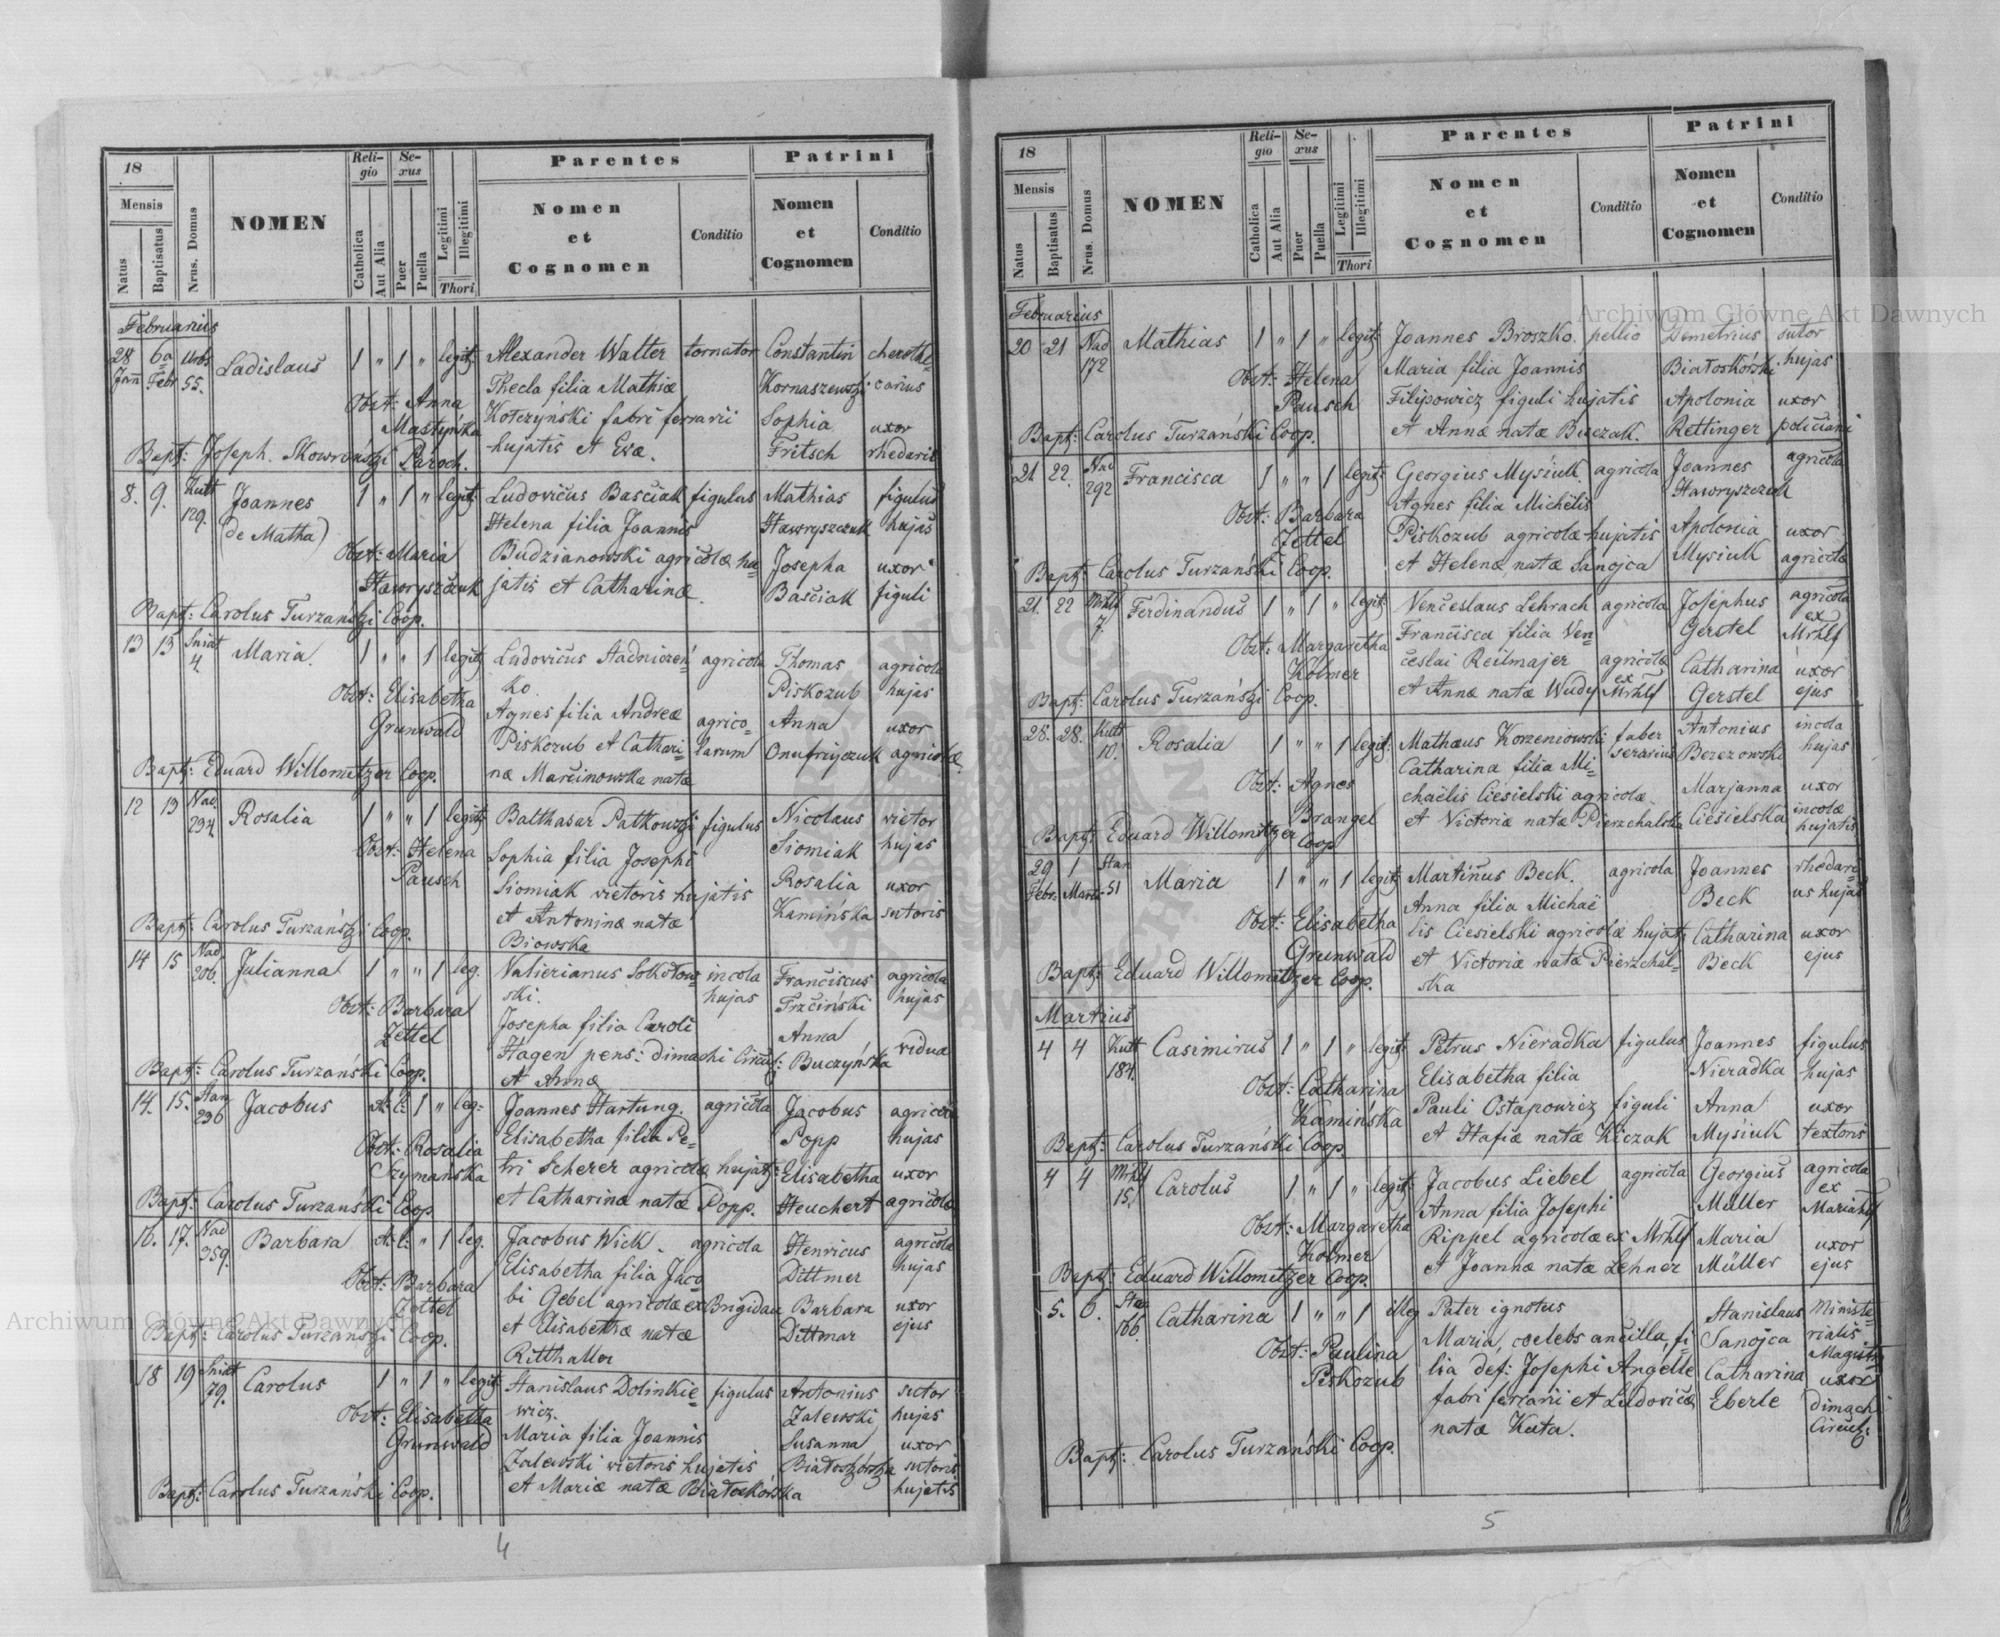 18
Mensis
Natus
Baptisatus
Nrus. Domus
NOMEN
Reli-
gio
Catholica
Aut Alia
Se-
xus
Puer
Puella
Legitimi
Illegitimi
Thori
Parentes
Nomen
et
Cognomen
Conditio
Patrini
Nomen
et
Cognomen
Conditio
Februarius
28 6a Urbs Ladislaus 1 " 1 " legit: Alexander Walter tornator Constantin cherothe-
Jann Febr 55. Thecla filia Mathiæ Kornaszewski carius
Obst: Anna Kotczyński fabri ferrarii Sophia uxor
Mastyńska hujatis et Evæ. Fritsch rhedarii
Bapt: Joseph. Skowroński Paroch.
8. 9. Kutt 129. Joannes 1 " 1 " legit: Ludovicus Baściak figulus Mathias figulus
(de Matha) Helena filia Joannis Hawryszczuk hujas
Obst: Maria Budzianowski agricolæ hu- Josepha uxor
Hawryszczuk jatis et Catharinæ. Baściak figuli
Bapt: Carolus Turzański Coop.
13 13 Sniat 4. Maria. 1 " " 1 legit: Ludovicus Stadniczeń- agricola Thomas agricola
ko. Piskozub hujas
Obst: Elisabetha Agnes filia Andreæ agrico- Anna uxor
Grunwald Piskozub et Cathari- larum Onufryczuk agricolæ.
Bapt: Eduard Willometzer Coop. næ Marcinowska natæ
12 13 Nad. 294. Rosalia 1 " " 1 legit: Balthasar Patkowski figulus Nicolaus vietor
Obst: Helena Sophia filia Josephi Siomiak hujas
Pausch Siomiak vietoris hujatis Rosalia uxor
et Antoninæ natæ Kamińska sutoris
Bapt: Carolus Turzański Coop. Biowska
14 15 Nad. 206. Julianna 1 " " 1 leg. Valierianus Sokołow- incola Franciscus agricola
ski. hujas Trzciński hujas
Obst: Barbara Josepha filia Caroli Anna vidua
Zettel Hagen pens: dimachi Circul: Buczyńska
Bapt: Carolus Turzański Coop. et Annæ
14. 15. Han 296 Jacobus A: C: 1 " leg: Joannes Hartung. agricola Jacobus agricola
Obst: Rosalia Elisabetha filia Pe- Popp hujas
Szymańska tri Scherer agricolæ hujat: Elisabetha uxor
Bapt: Carolus Turzański Coop et Catharinæ natæ Popp. Heuchert agricolæ
16. 17. Nad 359. Barbara A: C: " 1 leg. Jacobus Wick. agricola Henricus agricola
Elisabetha filia Jaco- Dittmer hujas
Obst: Barbara bi Gebel agricolæ ex Brigidau Barbara uxor
Zettel et Elisabethæ natæ Dittmar ejus
Bapt: Carolus Turzański Coop. Ritthaller
18 19 Sniat 79. Carolus 1 " 1 " legit: Stanislaus Dolinkie- figulus Antonius sutor
wicz. Zalewski hujas
Obst: Elisabetha Maria filia Joannis Susanna uxor
Grunwald Zalewski vietoris hujatis Białoskórska sutoris
Bapt: Carolus Turzański Coop. et Mariæ natæ Białoskórska hujatis
4
18
Mensis
Natus
Baptisatus
Nrus. Domus
NOMEN
Reli-
gio
Catholica
Aut Alia
Se-
xus
Puer
Puella
Legitimi
Illegitimi
Thori
Parentes
Nomen
et
Cognomen
Conditio
Patrini
Nomen
et
Cognomen
Conditio
Februarius
20 21 Nad 172 Mathias 1 " 1 " legit: Joannes Broszko. pellio Demetrius sutor
Obst: Helena Maria filia Joannis Białoskórski hujas
Pausch Filipowicz figuli hujatis Apolonia uxor
Bapt: Carolus Turzański Coop. et Annæ natæ Burczak. Rettinger policiani
21. 22. Nad 292 Francisca 1 " " 1 legit: Georgius Mysiuk. agricola Joannes agricola
Agnes filia Michælis Hawryszczuk
Obst: Barbara Piskozub agricolæ hujatis Apolonia uxor
Zettel et Helenæ natæ Sanojca Mysiuk agricolæ
Bapt: Carolus Turzański Coop.
21. 22 Mrhlf 7. Ferdinandus 1 " 1 " legit: Venceslaus Lehrach agricola Josephus agricola ex
Obst: Margaretha Francisca filia Ven- Gerstel Mrhlf
Kolmer ceslai Reilmajer agricolæ ex Catharina uxor
Bapt: Carolus Turzański Coop. et Annæ natæ Wudy Mrhlf Gerstel ejus
28. 28. Kutt 10. Rosalia 1 " " 1 legit: Mathæus Korzeniowski faber serarius Antonius incola
Catharina filia Mi- Berezowski hujas
Obst: Agnes chaëlis Ciesielski agricolæ Marjanna uxor
Brangel et Victoriæ natæ Pierzchalska Ciesielska incolæ hujatis
Bapt: Eduard Willometzer Coop
29 Febr. 1 Martii Han 51 Maria 1 " " 1 legit: Martinus Beck. agricola Joannes rhedari-
Anna filia Michaë Beck us hujas
Obst: Elisabetha lis Ciesielski agricolæ hujat: Catharina uxor
Grunwald et Victoriæ natæ Pierzchal- Beck ejus
Bapt: Eduard Willometzer Coop. ska
Martius
4 4 Kutt 184. Casimirus 1 " 1 " legit: Petrus Nieradka figulus Joannes figulus
Elisabetha filia Nieradka hujas
Obst: Catharina Pauli Ostapowicz figuli Anna uxor
Kamińska et Hafiæ natæ Kiczak Mysiuk textoris
Bapt: Carolus Turzański Coop.
4 4 Mrhlf 15. Carolus 1 " 1 " legit: Jacobus Liebel agricola Georgius agricola ex
Anna filia Josephi Müller Mariahlf
Obst: Margaretha Rippel agricolæ ex Mrhlf Maria uxor
Kolmer et Joannæ natæ Lehner Müller ejus
Bapt: Eduard Willometzer Coop.
5. 6. 166. Catharina 1 " " 1 illeg Pater ignotus Stanislaus Ministe-
Maria, coelebs ancilla, fi- Sanojca rialis
Obst: Paulina lia def: Josephi Angelle Catharina uxor
Piskozub fabri ferrarii et Ludovicæ Eberle dimachi
natæ Kuta. Circul:
Bapt: Carolus Turzański Coop.
5
Archiwum Główne Akt Dawnych
Archiwum Główne Akt Dawnych